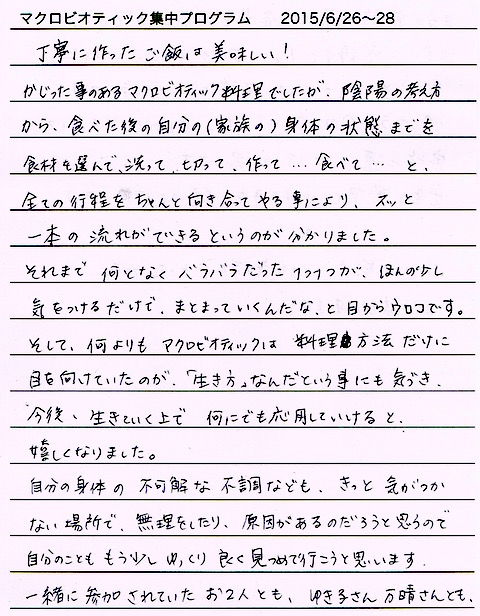 マクロビオティック集中プログラム　2015/6/26〜28
丁寧に作った ご飯は 美味しい！
かじった事のある マクロビオティック料理でしたが、陰陽の考え方
から、食べた後の自分の(家族の)身体の状態までを
食材を選んで、洗って、切って、作って…食べて…と、
全ての行程を ちゃんと向き合って やる事により、スッと
一本の 流れができる というのが 分かりました。
それまで 何となく バラバラだった 1つ1つが、ほんの少し
気をつけるだけで、まとまっていくんだな、と 目からウロコです。
そして、何よりも マクロビオティックは 料理方法 だけに
目を向けていたのが、「生き方」なんだという事にも 気づき、
今後、生きていく上で 何にでも応用していけると、
嬉しくなりました。
自分の身体の 不可解な 不調なども、きっと 気がつか
ない場所で、無理をしたり、原因があるのだろうと思うので
自分のことも もう少し ゆっくり 良く見つめて行こうと思います.
一緒に参加されていた お2人とも、ゆき子さん 万晴さんとも、